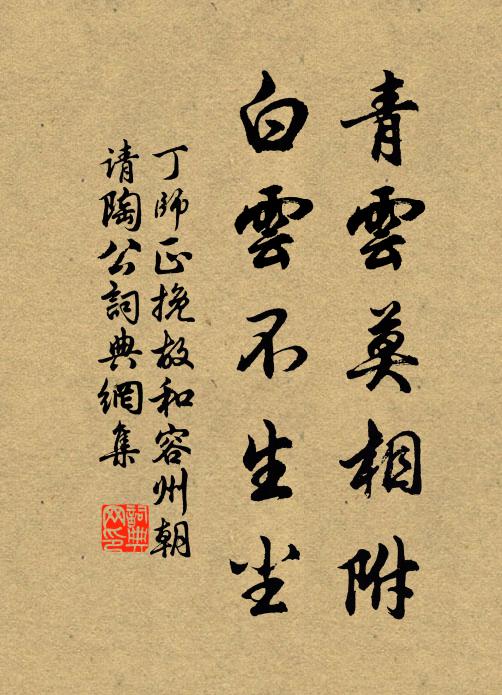 青雲莫相附
白雲不生尘
丁師正挽故和容州朝
请陶公詞典網集
詞典网印